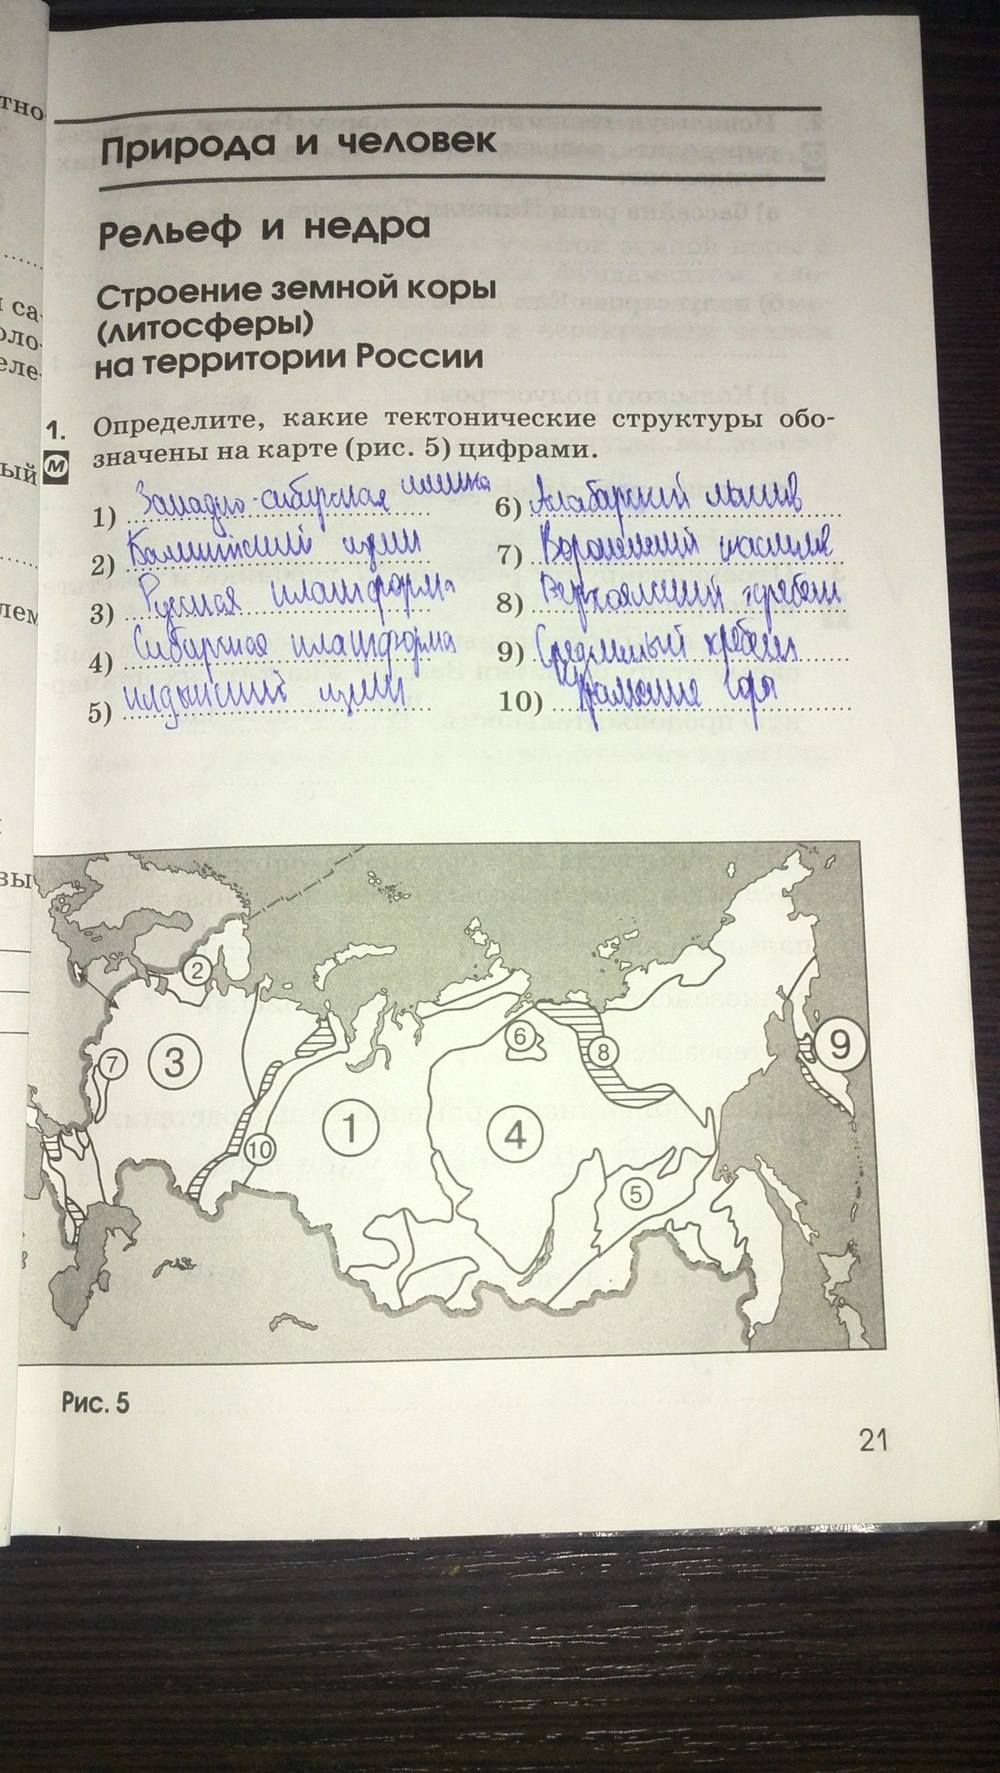 тно
са-
оло-
еле-
ый
лем
вы
Природа и человек
Рельеф и недра
Строение земной коры
(литосферы)
на территории России
1. Определите, какие тектонические структуры обо-
М значены на карте (рис. 5) цифрами.
1) Западно-сибирская плита
2) Балтийский щит
3) Русская платформа
4) Сибирская платформа
5) щит
6) Анабарский массив
7) Воронежский массив
8) Верхоянский хребет
9) Срединный хребет
10) Уральские горы
2
6
7
3
8
9
1
4
10
5
Рис. 5
21